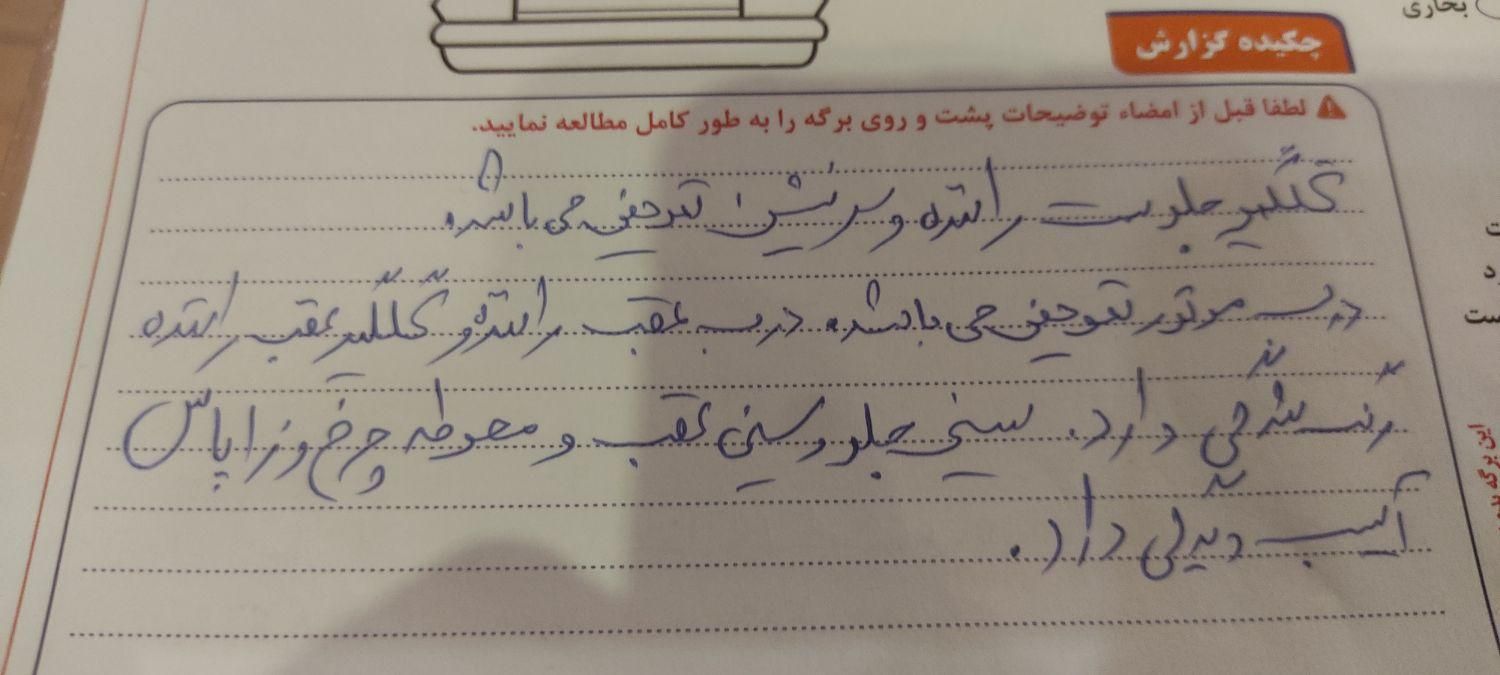 بخاری
چکیده گزارش
لطفا قبل از امضاء توضیحات پشت و روی برگه را به طور کامل مطالعه نمایید.
گلگیر جلو سمت راننده و سرشیش تعویضی می باشد.
درب موتور تعویضی می باشد. درب عقب راننده و گلگیر عقب راننده
رنگ شدگی دارد. سینی جلو و سینی عقب و محوطه چرخ زاپاس
آسیب دیدگی دارد.
این برگه